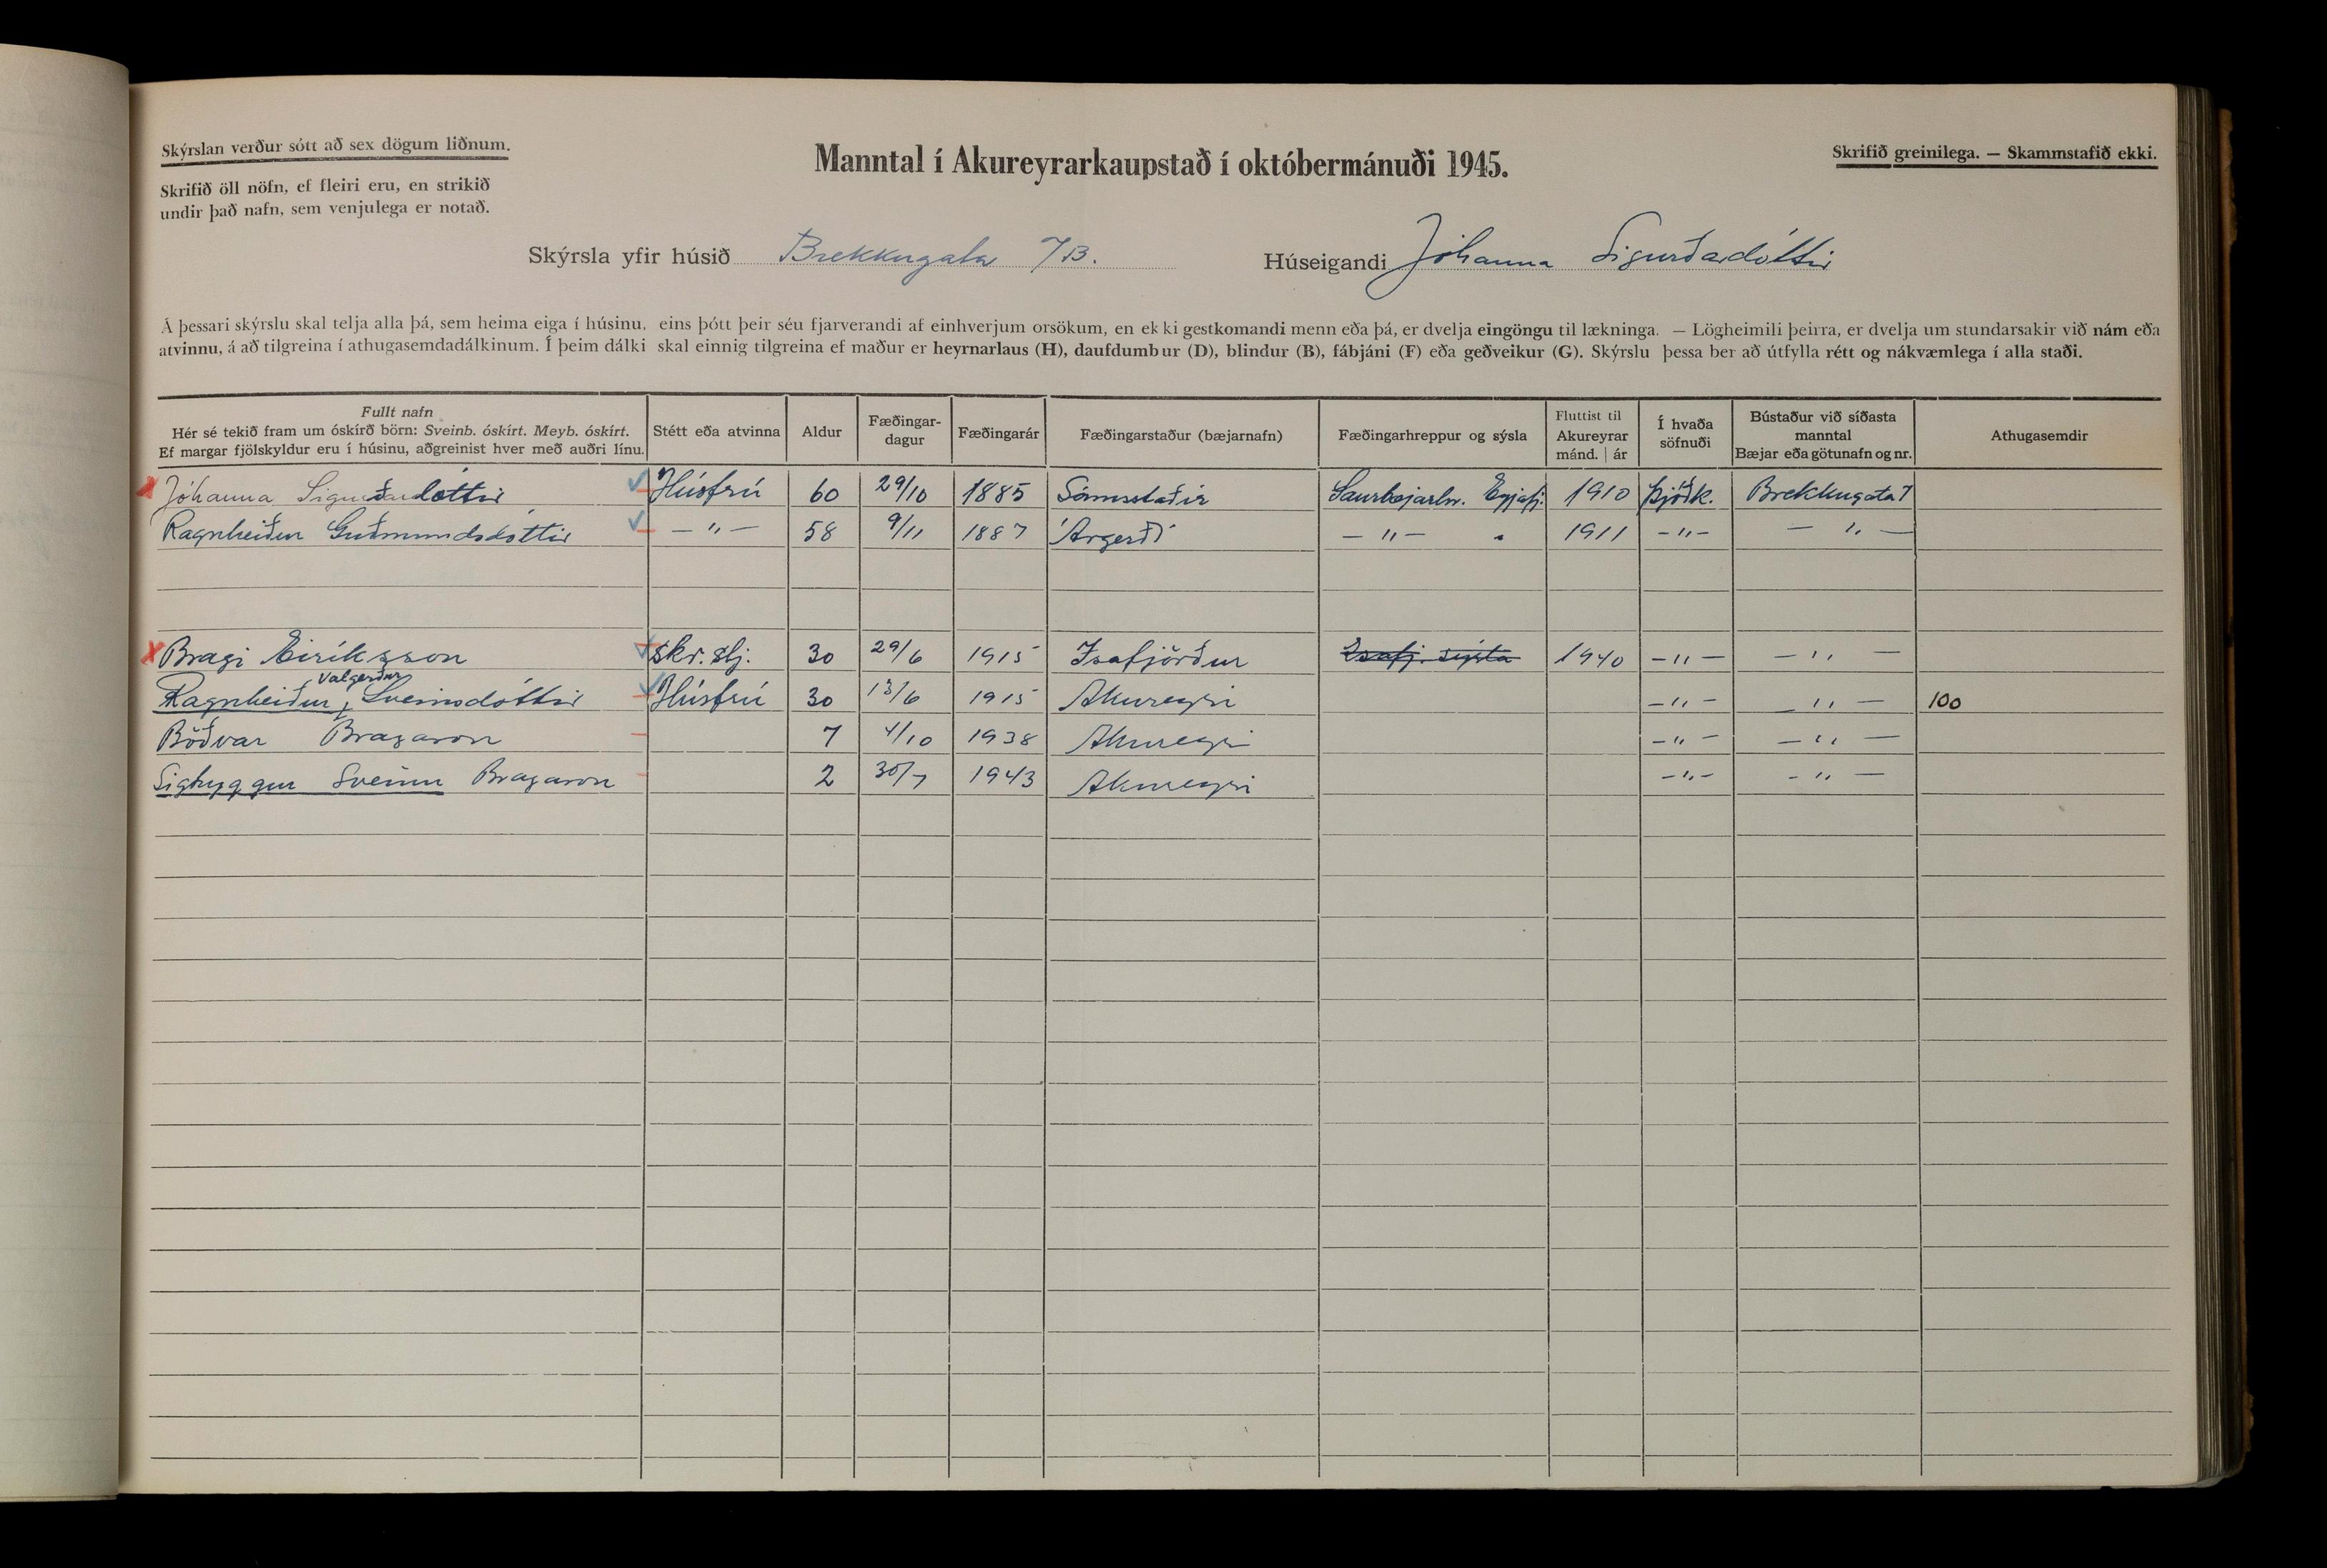 Skýrslan verður sótt að sex dögum liðnum.
Skrifið öll nöfn, ef fleiri eru, en strikið
undir það nafn, sem venjulega er notað.
Manntal í Akureyrarkaupstað í októbermánuði 1945.
Skrifið greinilega. — Skammstafið ekki.
Skýrsla yfir húsið Brekkugata 7B. Húseigandi Jóhanna Sigurðardóttir
Á þessari skýrslu skal telja alla þá, sem heima eiga í húsinu, eins þótt þeir séu fjarverandi af einhverjum orsökum, en ekki gestkomandi menn eða þá, er dvelja eingöngu til lækninga. — Lögheimili þeirra, er dvelja um stundarsakir við nám eða
atvinnu, á að tilgreina í athugasemdadálkinum. Í þeim dálki skal einnig tilgreina ef maður er heyrnarlaus (H), daufdumbur (D), blindur (B), fábjáni (F) eða geðveikur (G). Skýrslu þessa ber að útfylla rétt og nákvæmlega í alla staði.
Fullt nafn
Hér sé tekið fram um óskírð börn: Sveinb. óskírt. Meyb. óskírt.
Ef margar fjölskyldur eru í húsinu, aðgreinist hver með auðri línu.
Stétt eða atvinna
Aldur
Fæðingar-
dagur
Fæðingarár
Fæðingarstaður (bæjarnafn)
Fæðingarhreppur og sýsla
Fluttist til
Akureyrar
mánd. | ár
Í hvaða
söfnuði
Bústaður við síðasta
manntal
Bæjar eða götunafn og nr.
Athugasemdir
Jóhanna Sigurðardóttir Húsfrú 60 29/10 1885 Sámsstaðir Saurbæjarhr. Eyjafj. 1910 Þjóðk. Brekkugata 7
Ragnheiður Guðmundsdóttir — " — 58 9/11 1887 Árgerði — " — " 1911 — " — — " —
Bragi Eiríksson skr.stj. 30 29/6 1915 Ísafjörður Ísafj. sýsla 1940 — " — — " —
Valgerður
Ragnheiður Sveinsdóttir Húsfrú 30 13/6 1915 Akureyri — " — — " — 100
Böðvar Bragason 7 4/10 1938 Akureyri — " — — " —
Sigtryggur Sveinn Bragason 2 30/7 1943 Akureyri — " — — " —